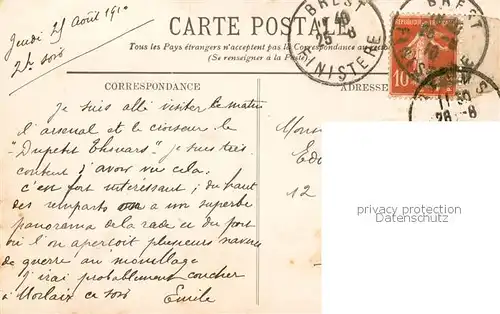 Jeudi 25 Août 1910
2h soir
CARTE POSTALE
Tous les Pays étrangers n'acceptent pas la Correspondance au recto
(Se renseigner à la Poste)
BREST
25 -8
FINISTERE
BREST
10
11 30
28 -8
CORRESPONDANCE
ADRESSE
Je suis allé visiter ce matin
l'arsenal et le croiseur le
"Dupetit Thouars" je suis très
content d'avoir vu cela.
c'est fort intéressant ; du haut
des remparts on a un superbe
panorama de la rade et du port
où l'on aperçoit plusieurs navires
de guerre au mouillage
J'irai probablement coucher
à Morlaix ce soir
Emile
12
privacy protection